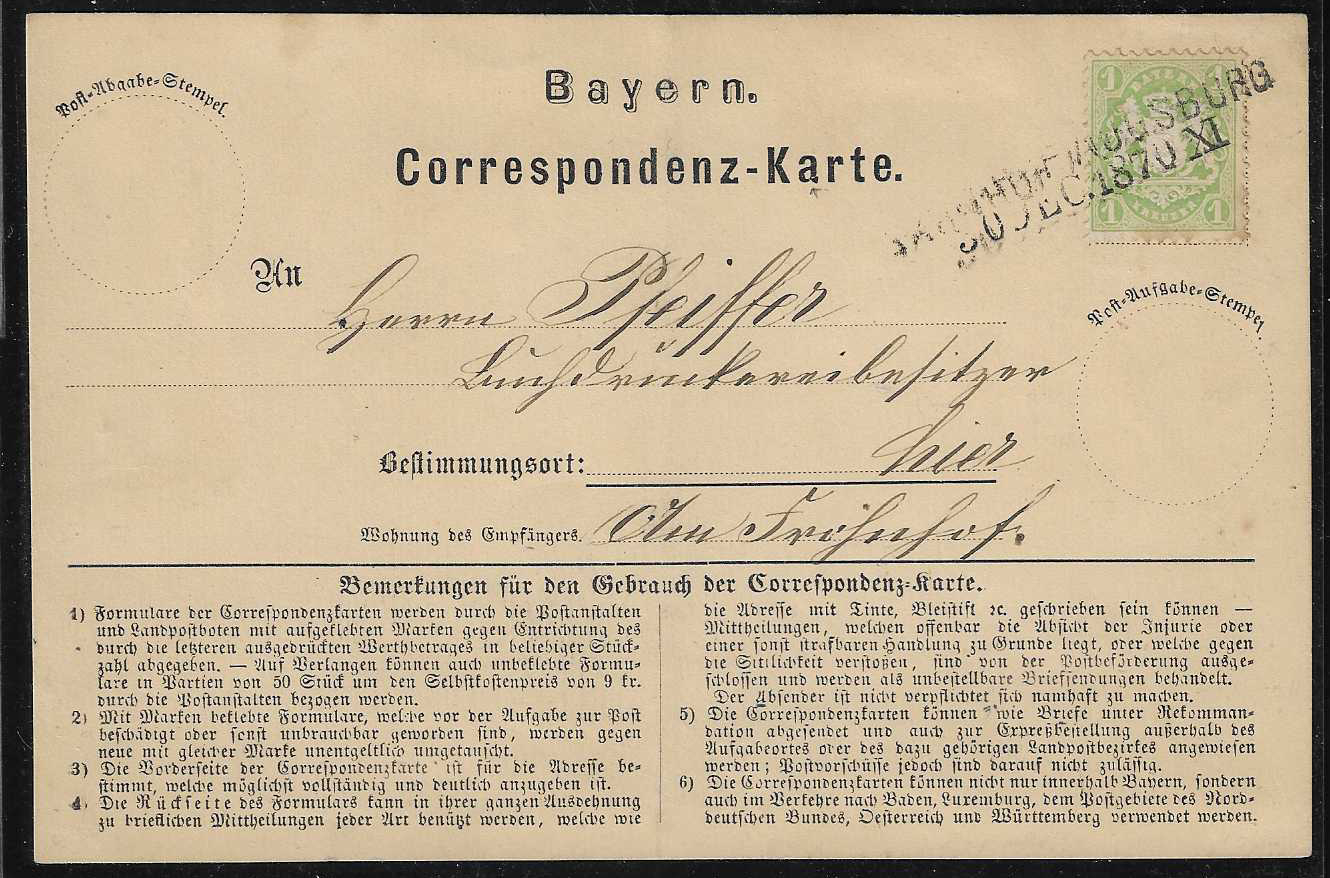 Bayern.
Correspondenz-Karte.
Post-Abgabe-Stempel.
1 BAYERN 1
1 KREUZER 1
BAHNHOF AUGSBURG
30 DEC. 1870 XI
An
Herrn Pfeiffer
Buchdruckereibesitzer
Post-Aufgabe-Stempel
Bestimmungsort: hier
Wohnung des Empfängers. Am Frohnhof.
Bemerkungen für den Gebrauch der Correspondenz-Karte.
1) Formulare der Correspondenzkarten werden durch die Postanstalten
und Landpostboten mit aufgeklebten Marken gegen Entrichtung des
durch die letzteren ausgedrückten Werthbetrages in beliebiger Stück-
zahl abgegeben. — Auf Verlangen können auch unbeklebte Formu-
lare in Partien von 50 Stück um den Selbstkostenpreis von 9 kr.
durch die Postanstalten bezogen werden.
2) Mit Marken beklebte Formulare, welche vor der Aufgabe zur Post
beschädigt oder sonst unbrauchbar geworden sind, werden gegen
neue mit gleicher Marke unentgeltlich umgetauscht.
3) Die Vorderseite der Correspondenzkarte ist für die Adresse be-
stimmt, welche möglichst vollständig und deutlich anzugeben ist.
4) Die Rückseite des Formulars kann in ihrer ganzen Ausdehnung
zu brieflichen Mittheilungen jeder Art benützt werden, welche wie
die Adresse mit Tinte, Bleistift ꝛc. geschrieben sein können —
Mittheilungen, welchen offenbar die Absicht der Injurie oder
einer sonst strafbaren Handlung zu Grunde liegt, oder welche gegen
die Sittlichkeit verstoßen, sind von der Postbeförderung ausge-
schlossen und werden als unbestellbare Briefsendungen behandelt.
Der Absender ist nicht verpflichtet sich namhaft zu machen.
5) Die Correspondenzkarten können wie Briefe unter Rekomman-
dation abgesendet und auch zur Expreßbestellung außerhalb des
Aufgabeortes oder des dazu gehörigen Landpostbezirkes angewiesen
werden; Postvorschüsse jedoch sind darauf nicht zulässig.
6) Die Correspondenzkarten können nicht nur innerhalb Bayern, sondern
auch im Verkehre nach Baden, Luxemburg, dem Postgebiete des Nord-
deutschen Bundes, Oesterreich und Württemberg verwendet werden.